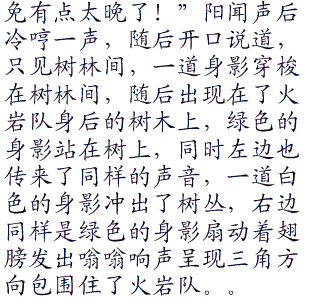 免有点太晚了！”阳闻声后
冷哼一声，随后开口说道，
只见树林间，一道身影穿梭
在树林间，随后出现在了火
岩队身后的树木上，绿色的
身影站在树上，同时左边也
传来了同样的声音，一道白
色的身影冲出了树丛，右边
同样是绿色的身影扇动着翅
膀发出嗡嗡响声呈现三角方
向包围住了火岩队。。